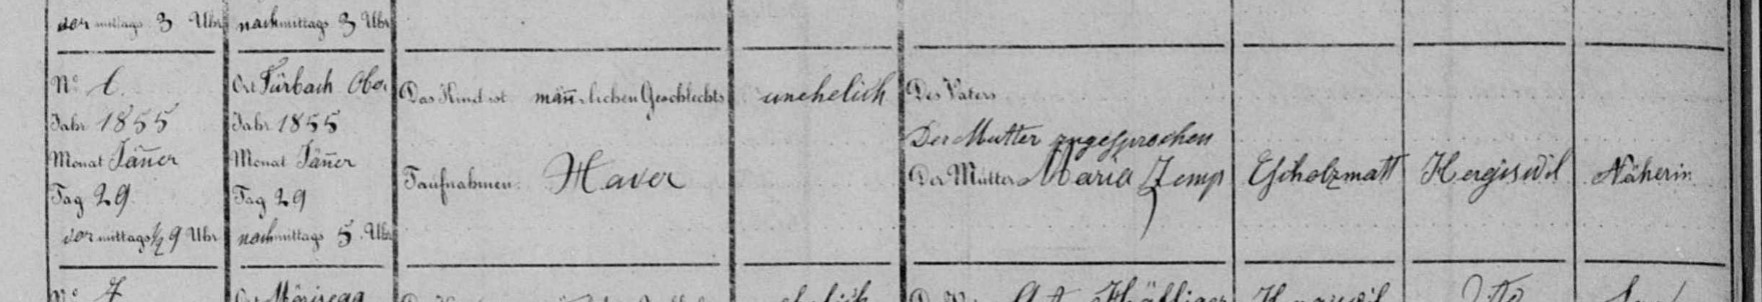 vor mittags 3 Uhr
nachmittags 3 Uhr
N° 6.
Jahr 1855
Monat Jäner
Tag 29
vor mittags ½ 9 Uhr
Ort Fürbach Ober
Jahr 1855
Monat Jäner
Tag 29
nachmittags 5 Uhr
Das Kind ist mänlichen Geschlechts
Taufnahmen: Xaver
unehelich
Des Vaters
Der Mutter zugesprochen
Der Mutter Maria Zemp
Escholzmatt
Hergiswil
Näherin
N° 7
Ort